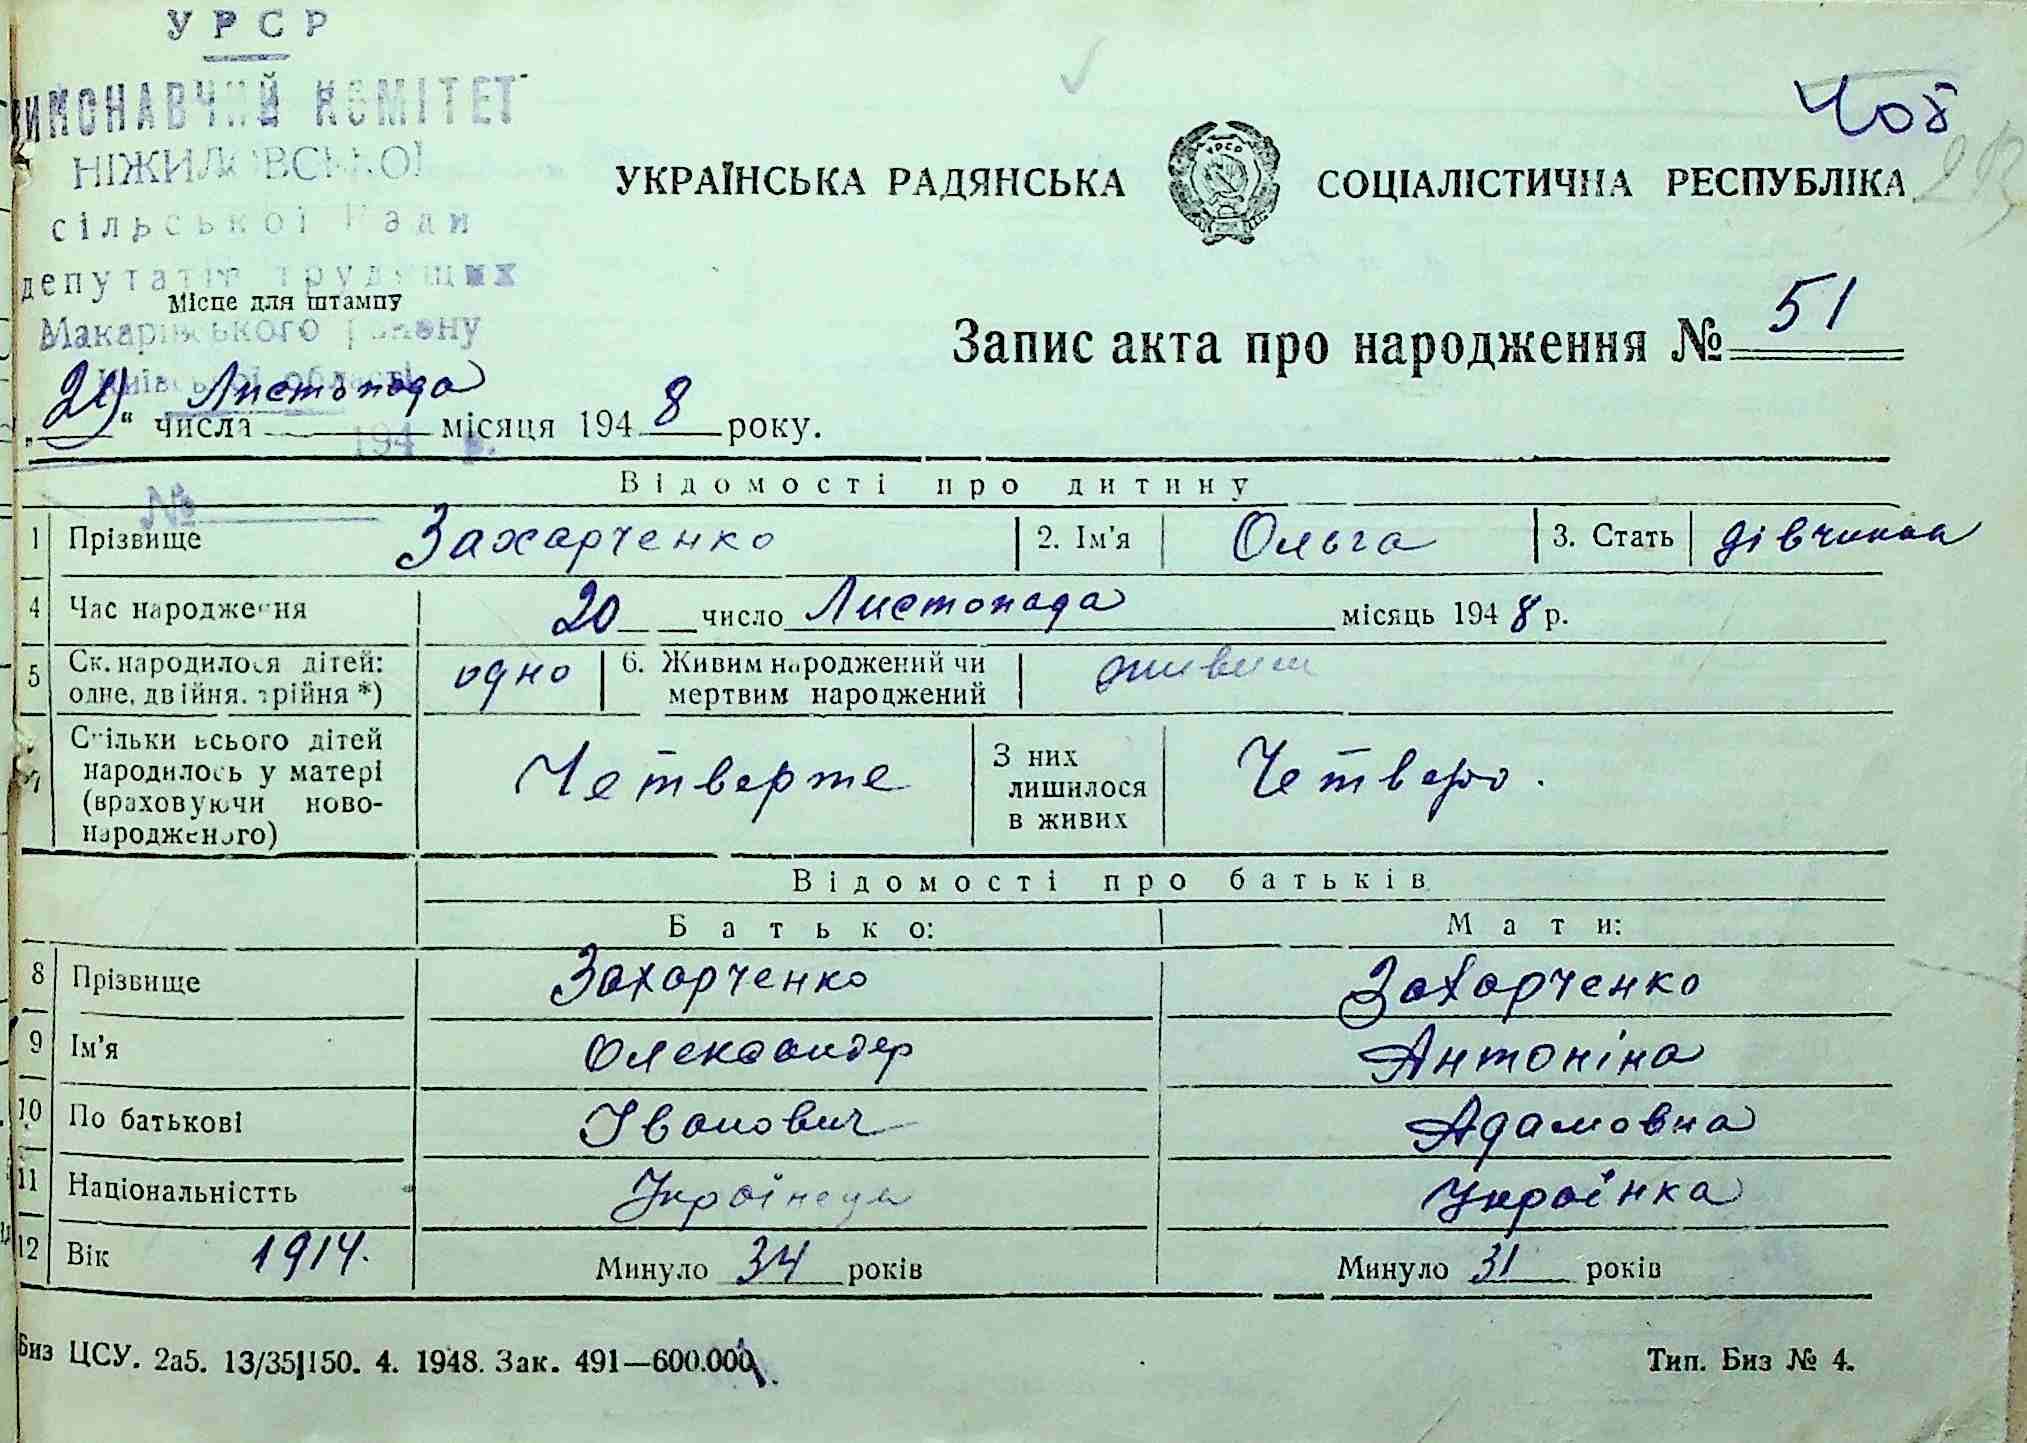 УРСР
ВИКОНАВЧИЙ КОМІТЕТ
НІЖИЛОВСЬКОЇ
сільської Ради
депутатів трудящих
Макарівського району
Київської області
194 р.
№
Місце для штампу
Чоб
УКРАЇНСЬКА РАДЯНСЬКА СОЦІАЛІСТИЧНА РЕСПУБЛІКА
Запис акта про народження № 51
числа Листопада місяця 1948 року.
Відомості про дитину
1 Прізвище Захарченко 2. Ім'я Ольга 3. Стать дівчинка
4 Час народження 20 число Листопада місяць 1948 р.
5 Ск. народилося дітей: одне, двійня, трійня *) одно 6. Живим народжений чи мертвим народжений живим
7 Скільки всього дітей народилось у матері (враховуючи ново-народженого) Четверте З них лишилося в живих Четверо.
Відомості про батьків
Батько: Мати:
8 Прізвище Захарченко Захарченко
9 Ім'я Олександер Антоніна
10 По батькові Іванович Адамовна
11 Національністть Українець Українка
12 Вік 1914. Минуло 34 років Минуло 31 років
Биз ЦСУ. 2а5. 13/35|150. 4. 1948. Зак. 491—600.000. Тип. Биз № 4.